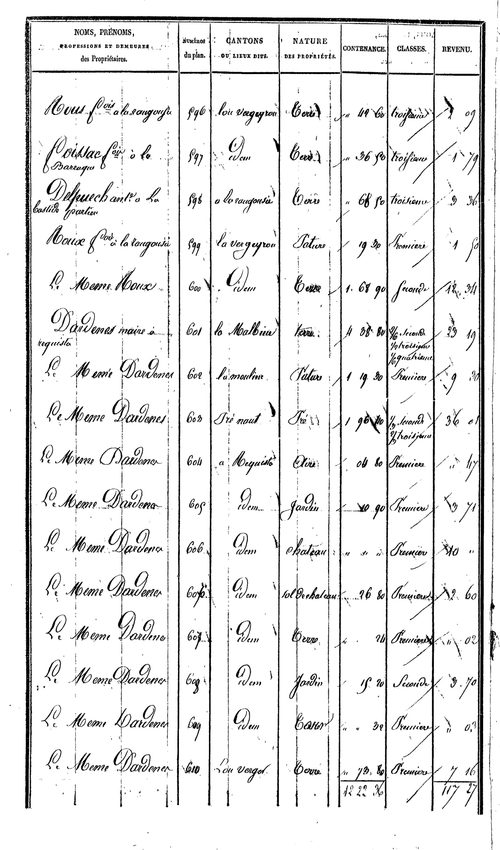 NOMS, PRÉNOMS, PROFESSIONS ET DEMEURES des Propriétaires. NUMÉROS du plan. CANTONS OU LIEUX DITS. NATURE DES PROPRIÉTÉS. CONTENANCE. CLASSES. REVENU.
Roux fcois a la rangousie 596 lou vergeyrou Terre " 42 60 troisieme 2 09
foissac fcois à la Barraque 597 idem Terre " 36 50 troisieme 1 79
Delpuech ant.e a La bastide 598 a la rangousie Terre " 68 50 troisieme 3 36
Roux fcois à la rangousie 599 la vergeyrou Pature 1 19 30 Premiere 1 50
Le Meme Roux 600 idem Terre 1 68 90 Seconde 12 34
Dardenes maire à requista 601 la Terre 4 38 80 seconde troisieme quatrieme 23 19
Le Meme Dardenes 602 la mouline Pature 1 19 30 Premiere 9 30
Le Meme Dardenes 603 Pré naut Pré 1 96 20 seconde troisieme 36 01
Le Meme Dardenes 604 a Requista Aire 04 80 Premiere " 47
Le Meme Dardenes 605 idem Jardin 10 90 Premiere 3 71
Le Meme Dardenes 606 idem chateau " " " Premier 10 "
Le Meme Dardenes idem sol de chateau 26 80 Premiere 2 60
Le Meme Dardenes 607 idem Terre " 24 Premiere " 02
Le Meme Dardenes 608 idem Jardin 15 20 Seconde 3 70
Le Meme Dardenes 609 idem " " 32 Premiere " 03
Le Meme Dardenes 610 Lou verger Terre " 73 80 Premiere 7 16
12 22 36 117 27